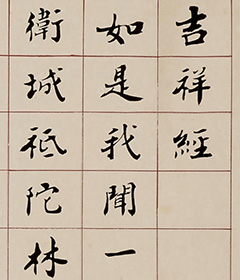 吉祥經
如是我聞一
衛城祗陀林